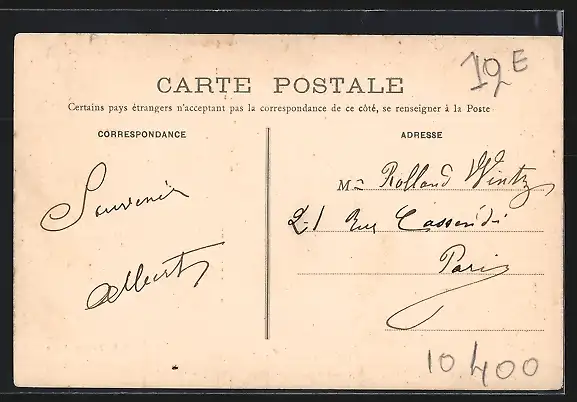 19E
CARTE POSTALE
Certains pays étrangers n'acceptant pas la correspondance de ce côté, se renseigner à la Poste
CORRESPONDANCE
ADRESSE
Souvenir
Albert
M Rolland Wintz
21 Rue Cassendi
Paris
10400